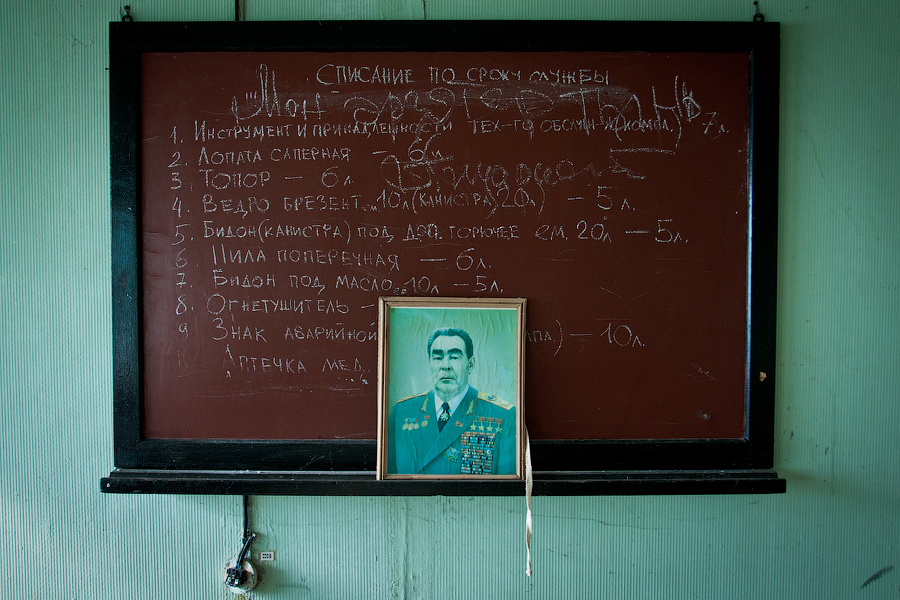 Списание по сроку службы
1. Инструмент и принадлежности тех-го обслуж-я (компл.) 7 л.
2. Лопата саперная – 6 л.
3. Топор – 6 л.
4. Ведро брезент. ем. 10л (канистра, 20л) – 5 л.
5. Бидон (канистра) под доп. горючее ем. 20л – 5 л.
6 Пила поперечная – 6 л.
7. Бидон под масло ем. 10л – 5 л.
8. Огнетушитель –
9 Знак аварийной
– 10 л.
10 Аптечка мед.